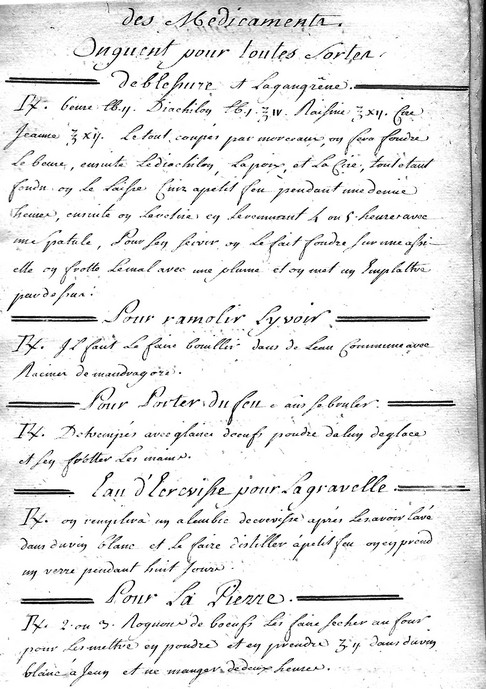 des Medicaments.
Onguent pour toutes Sortes
de blessure et Lagangrêne.
℞. beure ℔.ij. Diachilon ℔.j. ℥iv. Raisine ℥xij. Cire
Jeaune ℥xij. Le tout coupés par morceaux, on fera fondre
Le beure, ensuite Lediachilon, Lapoix, et La Cire, tout etant
fondu on Le Laisse Cuire apetit feu pendant une demie
heure, ensuite on en Leremuant 4 ou 5 heures avec
une spatule, Pour sen servir on Le fait fondre sur une assi-
elle on frotte Lemal avec une plume et on met un Emplattre
pardessus.
Pour ramolir Lyvoir
℞. Il faut Le faire bouillir dans de Leau Commune avec
Racines de mandragore.
Pour Porter du feu sans se bruler.
℞. Detrempés avec glaire doeufs poudre dalun deglace
et sen frotter Les mains.
Eau d'Ecrevisse pour Lagravelle.
℞. on remplira un alembic decrevisse après Les avoir Lavé
dans duvin blanc et Le faire distiller apetit feu on en prend
un verre pendant huit Jours.
Pour La Pierre.
℞. 2. ou 3. Rognons de boeufs Les faire secher au four
pour Les mettre en poudre et en prendre ʒij dans duvin
blanc à Jeun et ne manger dedeux heures.